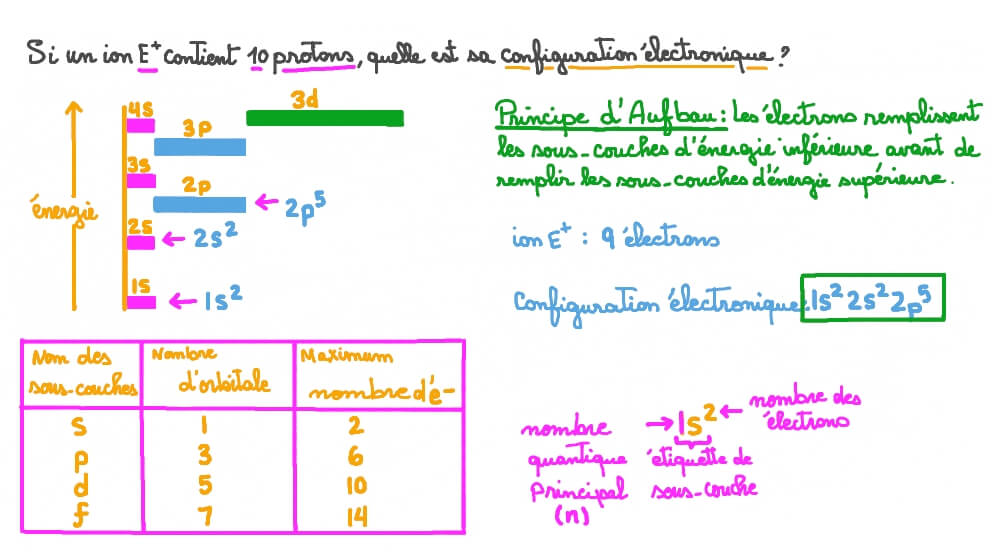 Si un ion E⁺ contient 10 protons, quelle est sa configuration électronique ?
énergie
4s
3d
3p
3s
2p
← 2p⁵
2s
← 2s²
1s
← 1s²
Principe d'Aufbau : Les électrons remplissent
les sous-couches d'énergie inférieure avant de
remplir les sous-couches d'énergie supérieure.
ion E⁺ : 9 électrons
Configuration électronique : 1s² 2s² 2p⁵
Nom des sous-couches | Nombre d'orbitale | Maximum nombre d'é-
s | 1 | 2
p | 3 | 6
d | 5 | 10
f | 7 | 14
nombre quantique Principal (n)
→ 1s² ←
nombre des électrons
étiquette de sous-couche